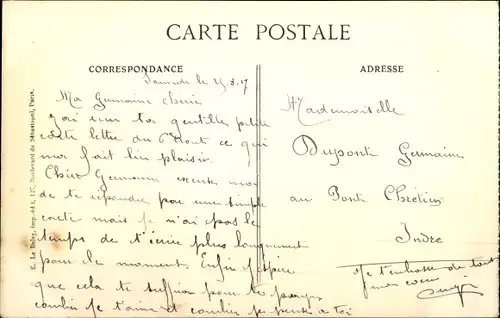 CARTE POSTALE
CORRESPONDANCE
ADRESSE
Samedi le 25.8.17
Ma Germaine chérie
J'ai eu ta gentille petite
carte lettre du 6 Aout ce qui
m'a fait bien plaisir.
Chère Germaine excuse moi
de te répondre par une simple
carte mais je n'ai pas le
temps de t'écrire plus longuement
pour le moment. Enfin j'espère
que cela te suffira pour te
combien je t'aime et combien je pense à toi
Mademoiselle
Dupont Germaine
au Pont Chrétien
Indre
Je t'embrasse de tout
mon coeur
E. Le Deley, imp.-édit., 127, Boulevard de Sébastopol, Paris.